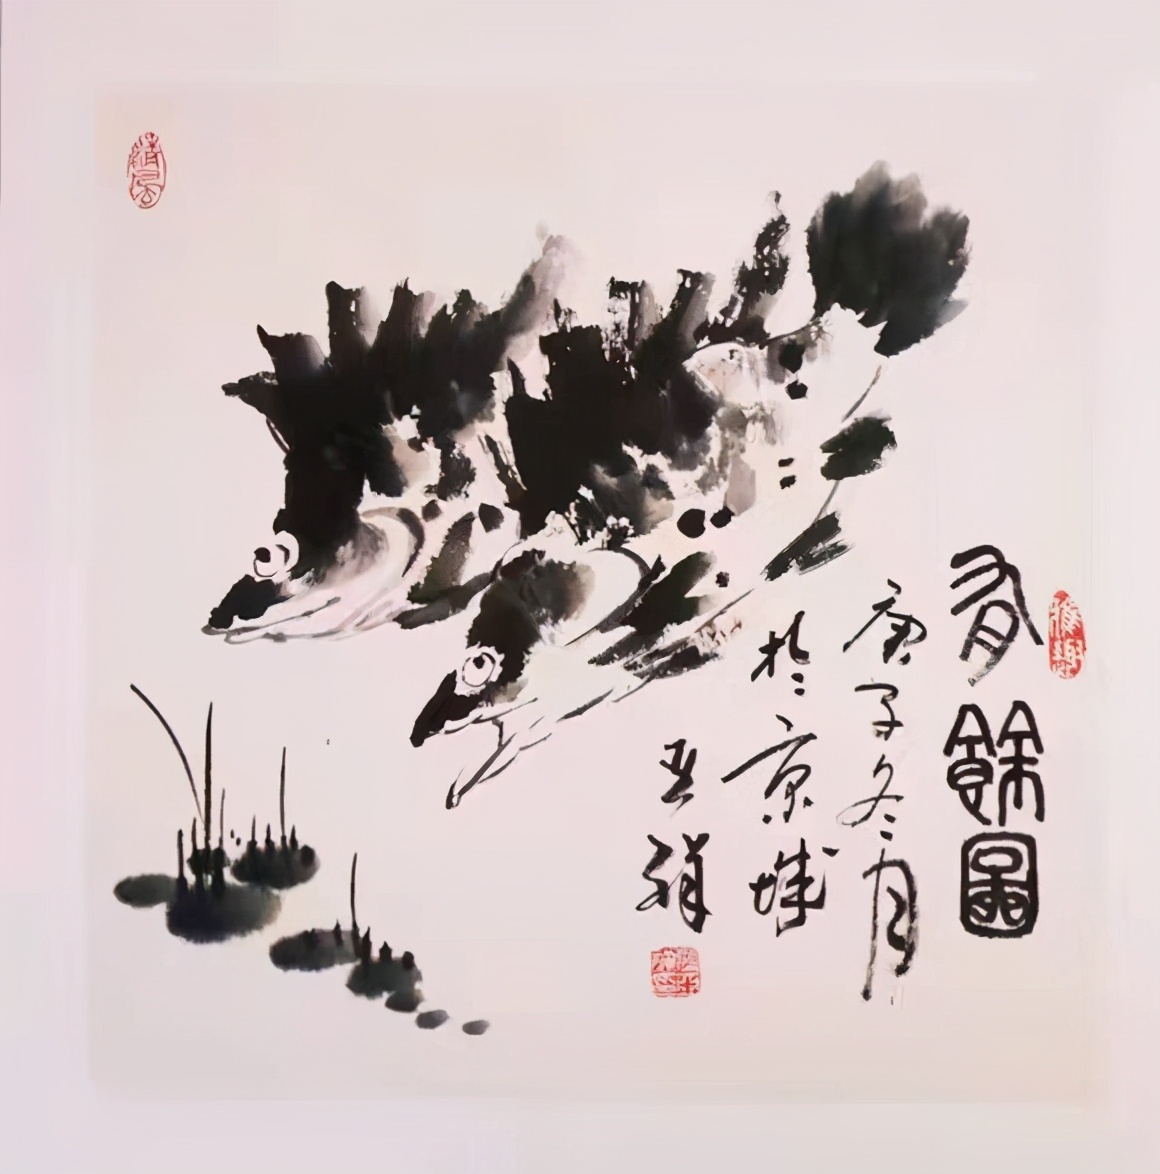 有餘圖
庚子冬月
於京城
亚祥